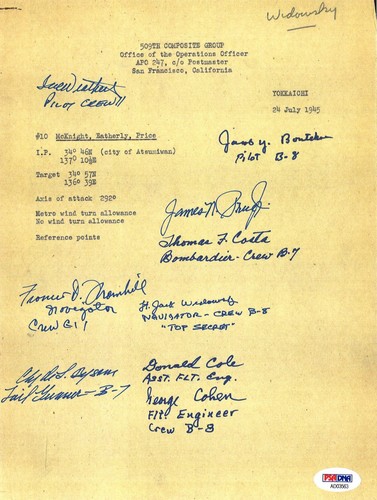 Widowsky
509TH COMPOSITE GROUP
Office of the Operations Officer
APO 247, c/o Postmaster
San Francisco, California
YOKKAICHI
24 July 1945
PILOT CREW 11
#10 McKnight, Eatherly, Price
I.P. 34° 46N (city of Atsumiwan)
137° 10½E
James Y. Bontekoe
Pilot B-8
Target 34° 57N
136° 39E
Axis of attack 292°
Metro wind turn allowance
No wind turn allowance
James N. Price Jr.
Reference points
Thomas F. Costa
Bombardier - Crew B-7
Francis D. Thornhill
Navigator
Crew G11
H. Jack Widowsky
NAVIGATOR - CREW B-8
"TOP SECRET"
Tail Gunner - B-7
Donald Cole
ASST. FLT. Eng.
George Cohen
Flt. Engineer
Crew B-8
PSA/DNA